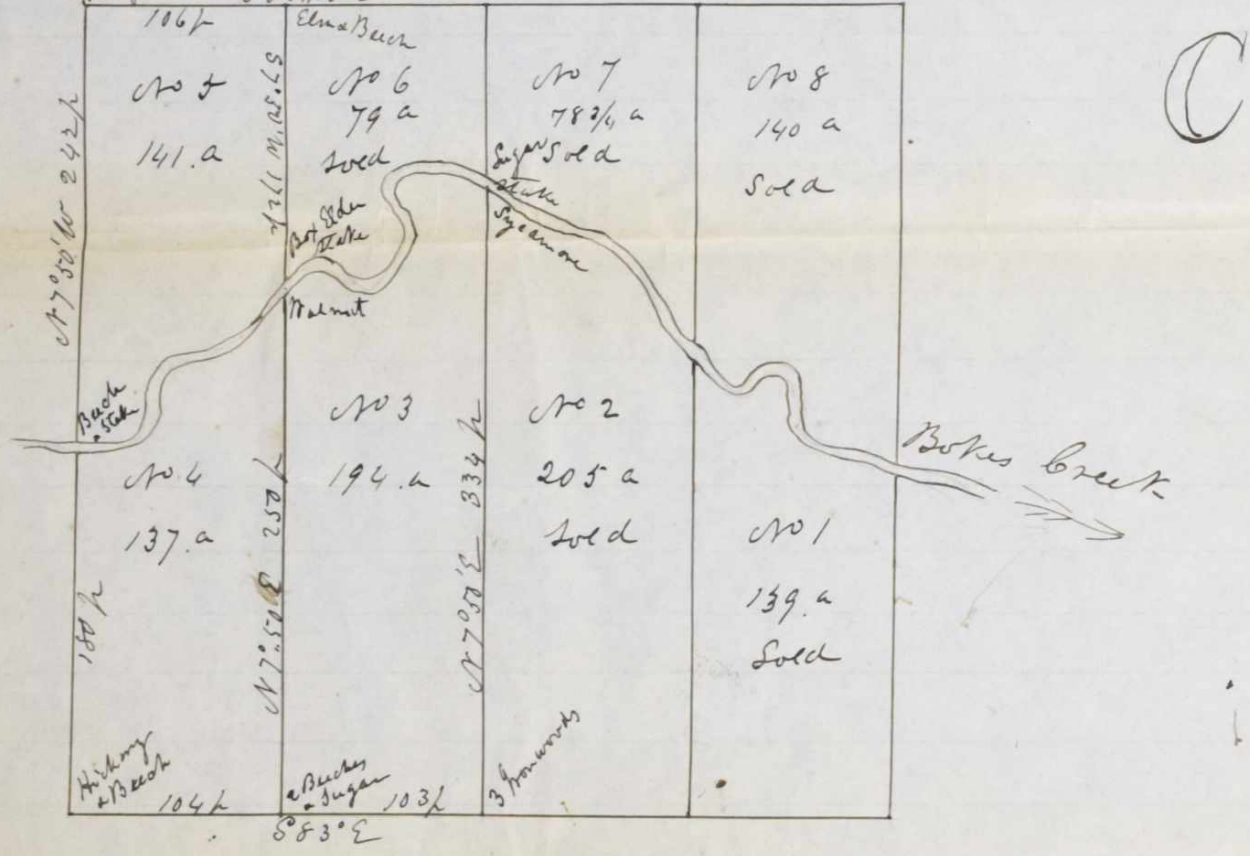 106 p
Elm & Beech
C
No 5
141. a
No 6
79 a
Sold
No 7
78 3/4 a
Sold
No 8
140 a
Sold
N 7° 50' W 242 p
Sugar
Stake
Sycamore
Box Elder
Stake
Walnut
Beech
& Stake
No 4
137. a
No 3
194. a
No 2
205 a
Sold
No 1
139. a
Sold
Bokes Creek
180 p
N 7°. 50' E 250 p
N 7° 50' E 334 p
Hickory
& Beech
104 p
2 Beeches
& Sugar
103 p
3 Ironwoods
S 83° E